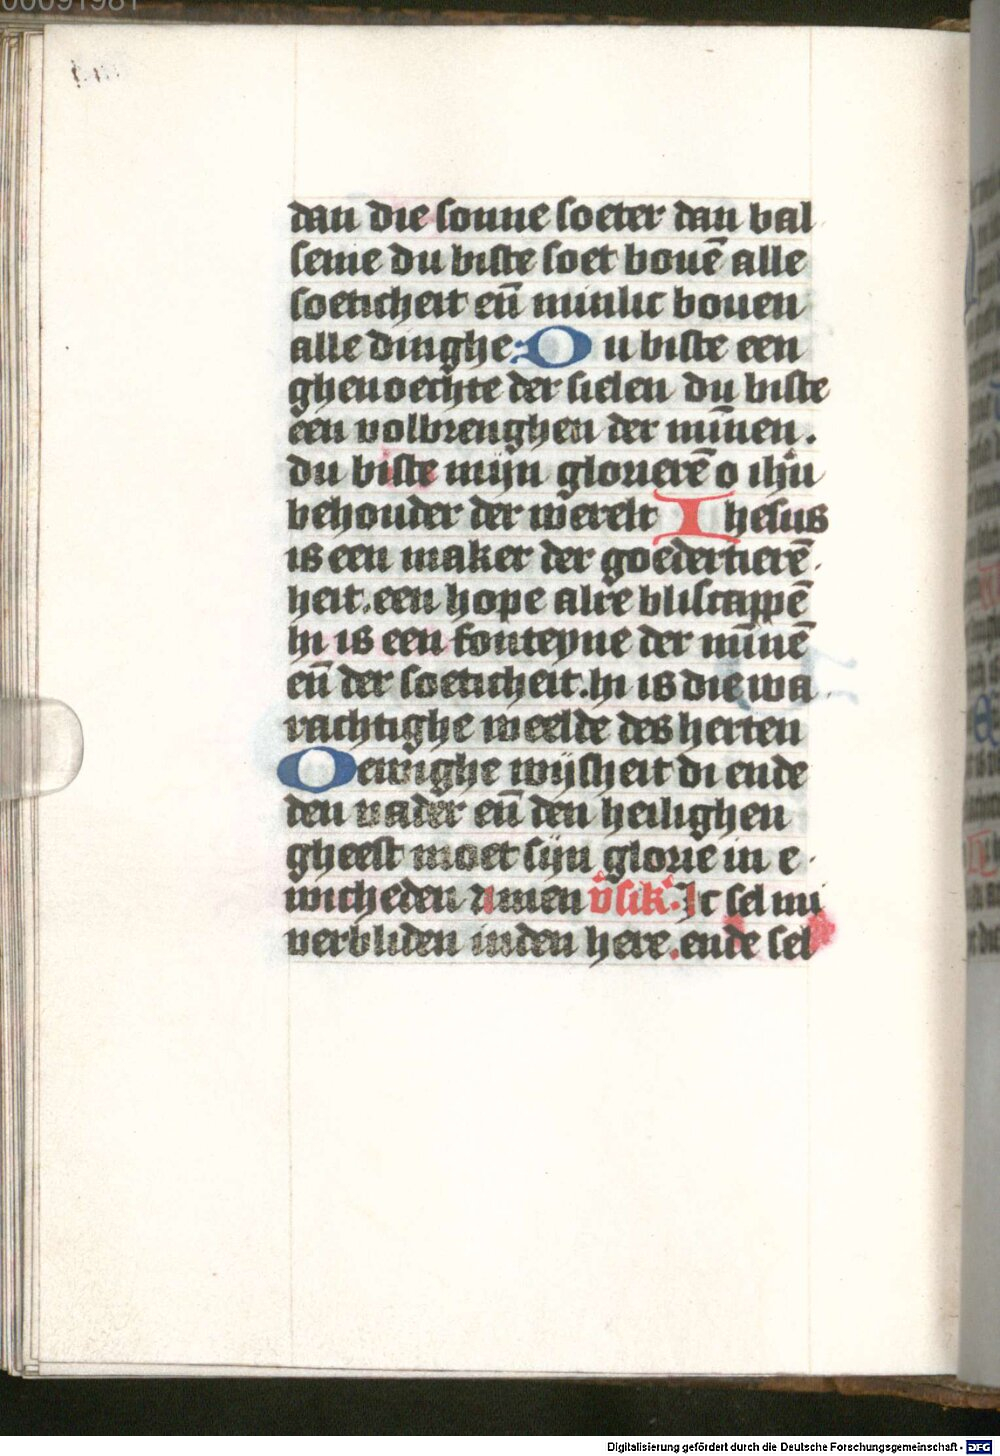 00091981
dan die sonne soeter dan bal
seme du biste soet bouē alle
soeticheit eñ minlic bouen
alle dinghe: Du biste een
gheuoechte der sielen du biste
een volbrenghen der mīnen.
du biste mijn glorierē o ihu
behouder der werelt Ihesus
is een maker der goedertierē
heit. een hope alre bliscappē
hi is een fonteyne der mīnē
eñ der soeticheit. hi is die wa
rachtighe weelde des herten
O ewighe wijsheit di ende
den vader eñ den heilighen
gheest moet sijn glorie in e
wicheden amen v̄sik. Ic sel mi
verbliden inden here. ende sel
Digitalisierung gefördert durch die Deutsche Forschungsgemeinschaft - DFG